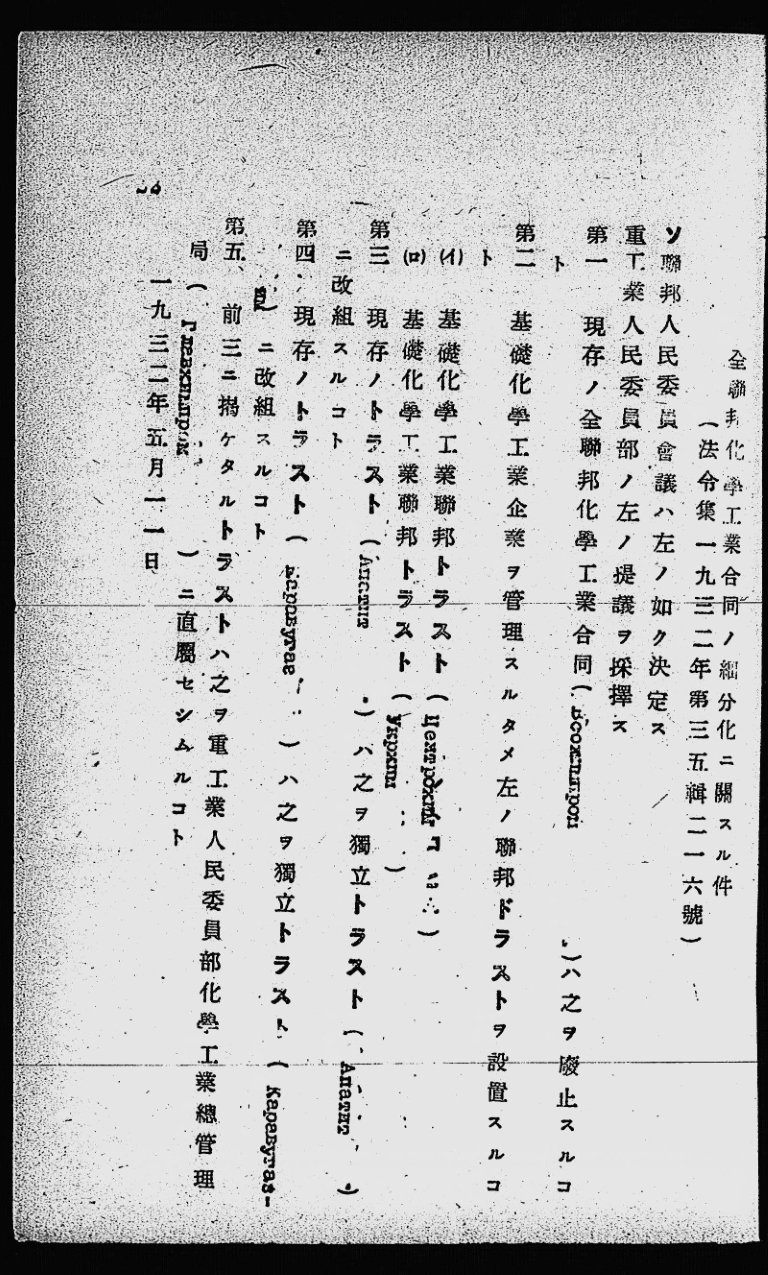 全聯邦化學工業合同ノ細分化ニ關スル件
(法令集一九三二年第三五輯二一六號)
ソ聯邦人民委員會議ハ左ノ如ク決定ス
重工業人民委員部ノ左ノ提議ヲ採擇ス
第一 現存ノ全聯邦化學工業合同(Всохимпром)ハ之ヲ廢止スルコ
ト
第二 基礎化學工業企業ヲ管理スルタメ左ノ聯邦ドラストヲ設置スルコ
ト
(イ) 基礎化學工業聯邦トラスト( )
(ロ) 基礎化學工業聯邦トラスト(Укрхим)
第三 現存ノトラスト(Апатит)ハ之ヲ獨立トラスト(Апатит)
ニ改組スルコト
第四 現存ノトラスト( )ハ之ヲ獨立トラスト(Каравугаз-
)ニ改組スルコト
第五、前三ニ揭ケタルトラストハ之ヲ重工業人民委員部化學工業總管理
局(Главхимпром)ニ直屬セシムルコト
一九三二年五月一一日